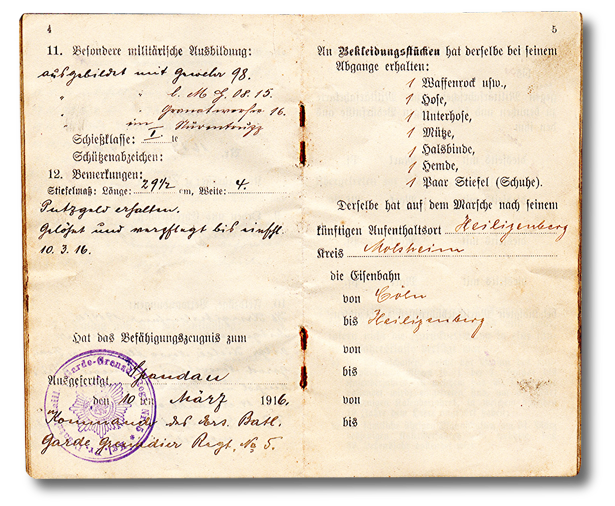 4
11. Besondere militärische Ausbildung:
ausgebildet mit Gewehr 98.
" " l. M. G. 08.15.
" " Granatwerfer 16.
" im Sturmtrupp
Schießklasse: I te
Schützenabzeichen:
12. Bemerkungen:
Stiefelmaß: Länge: 29½ cm, Weite: 4.
Putzgeld erhalten.
Gelöhnt und verpflegt bis einschl.
10. 3. 16.
Hat das Befähigungszeugnis zum
Ausgefertigt, Spandau
den 10 ten März 1916.
Kommando des Ers. Batl.
Garde Grenadier Regt. No 5.
Garde-Grenad
5
An Bekleidungsstücken hat derselbe bei seinem
Abgange erhalten:
1 Waffenrock usw.,
1 Hose,
1 Unterhose,
1 Mütze,
1 Halsbinde,
1 Hemde,
1 Paar Stiefel (Schuhe).
Derselbe hat auf dem Marsche nach seinem
künftigen Aufenthaltsort Heiligenberg
Kreis Molsheim
die Eisenbahn
von Cöln
bis Heiligenberg
von
bis
von
bis